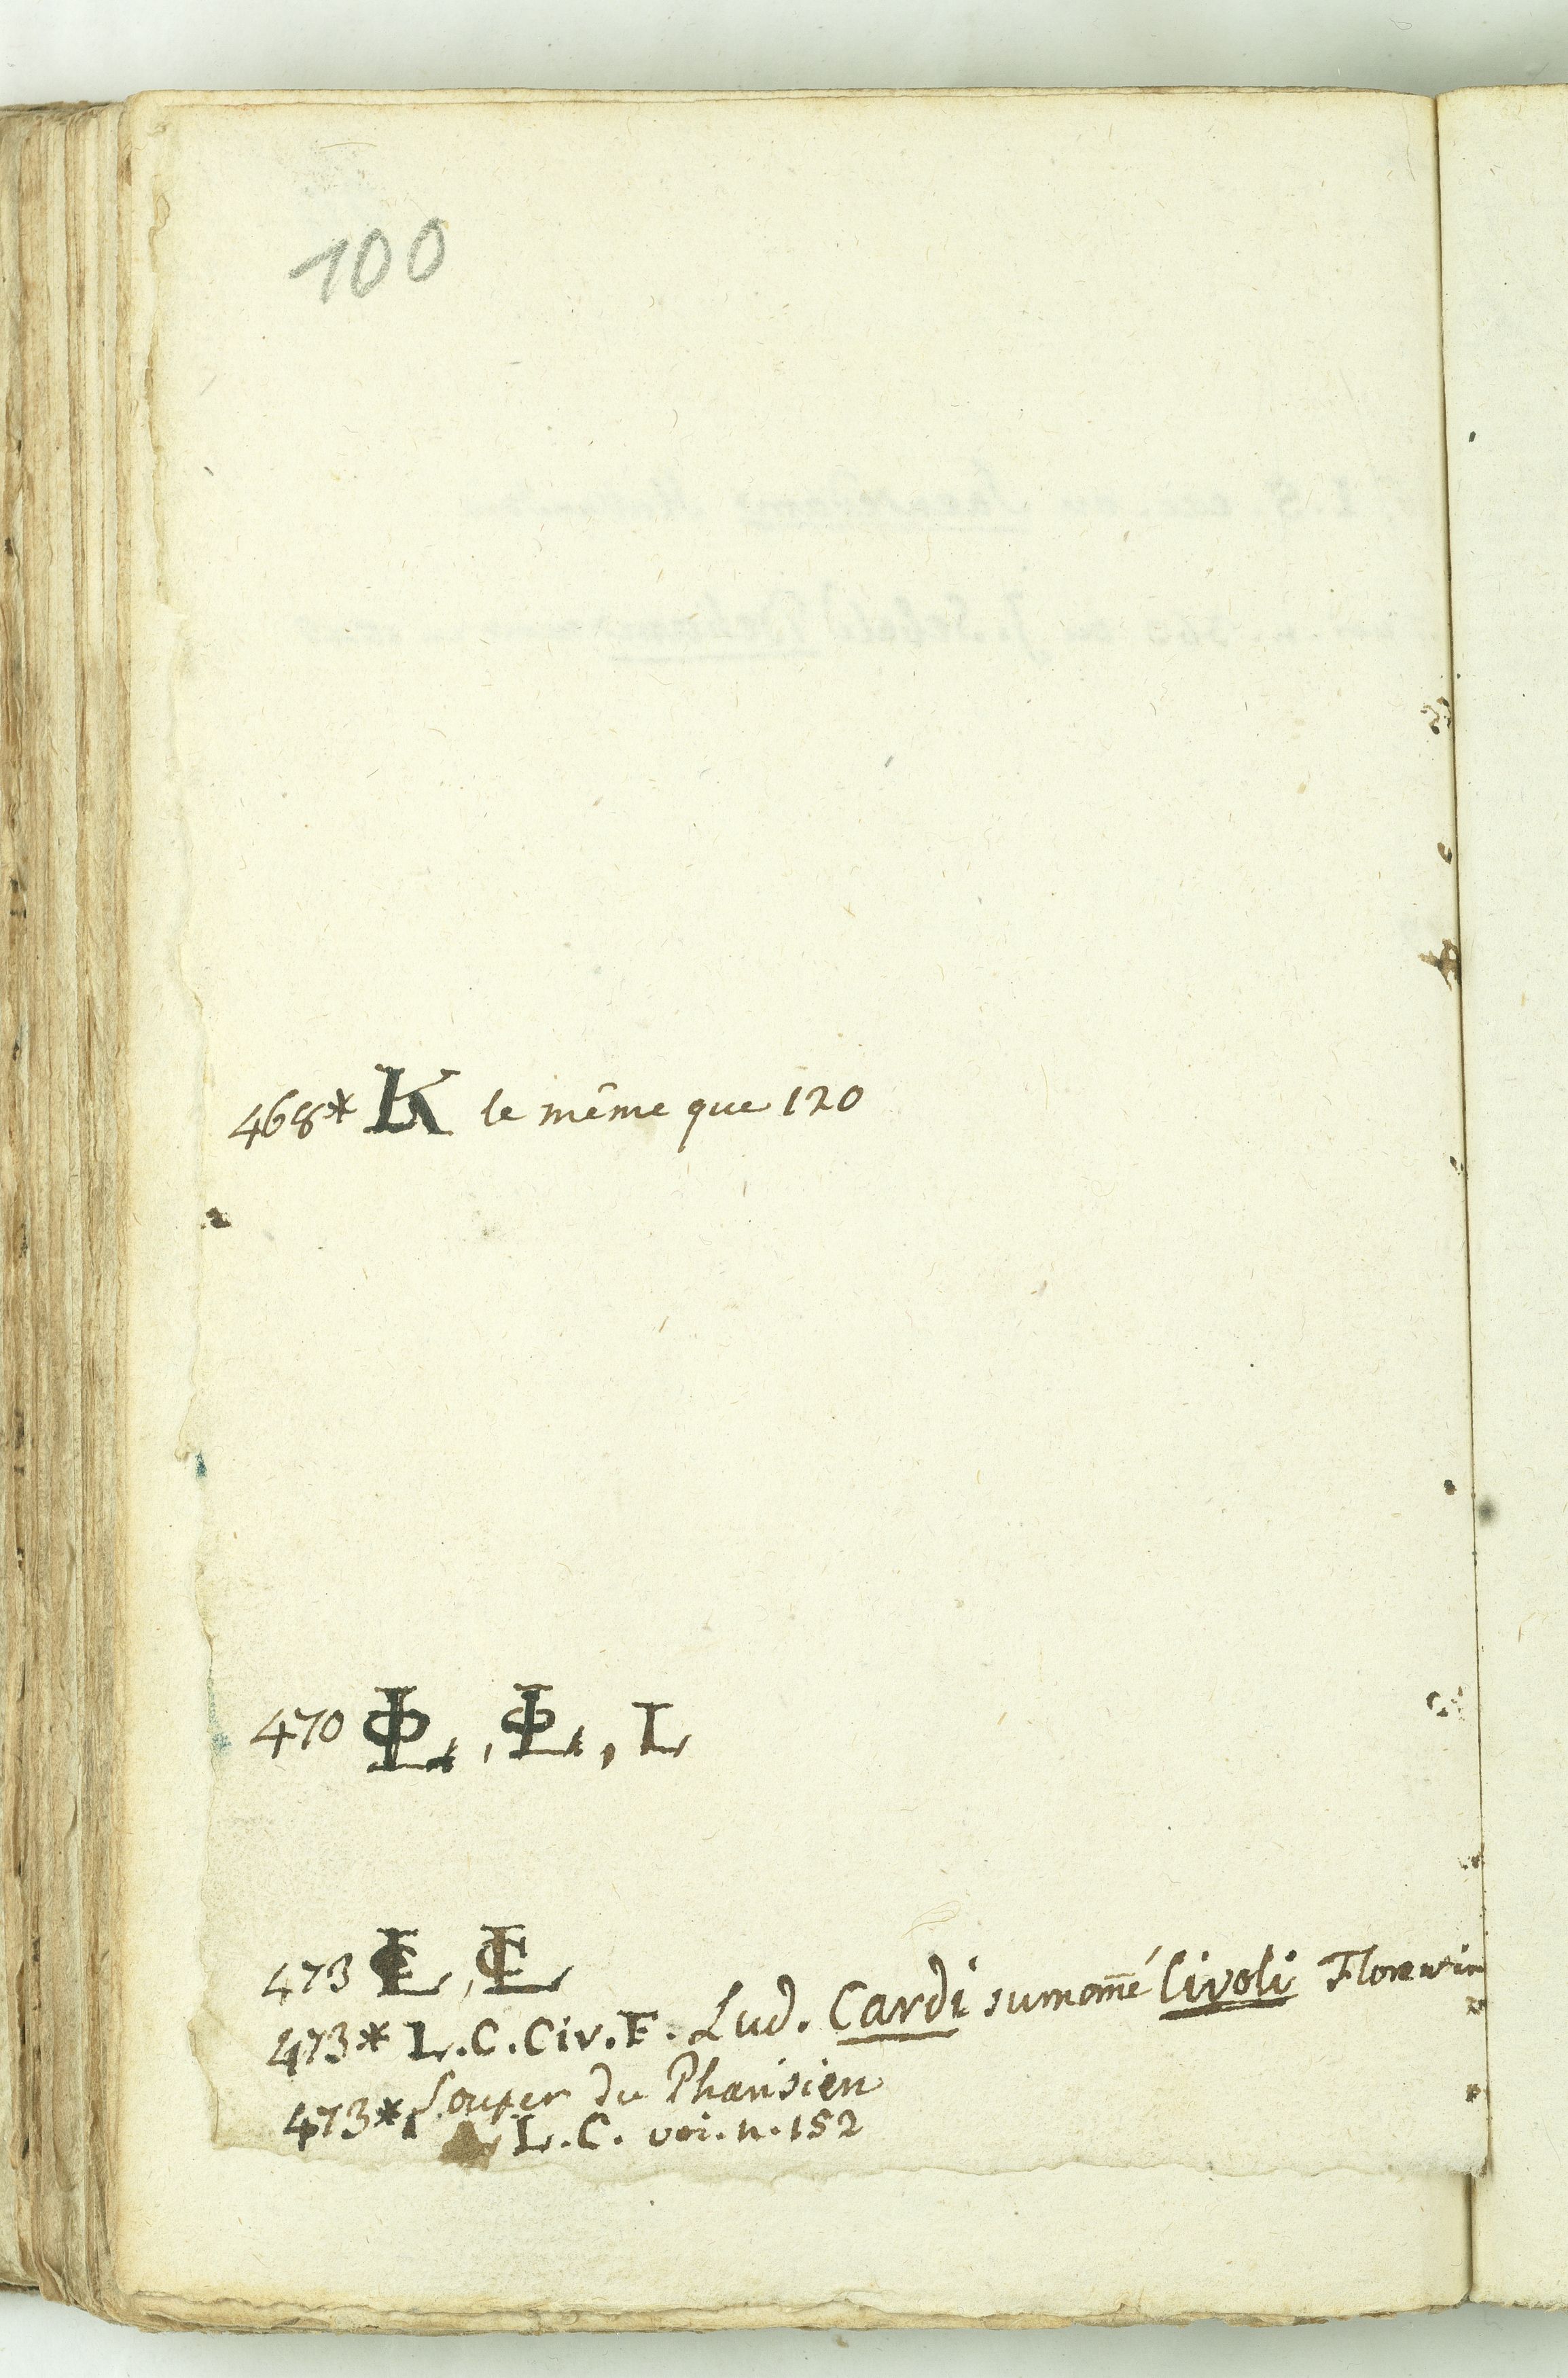 100
468* K le même que 120
470 , , L
473 ,
473* L.C.Civ.F. Lud. Cardi surnom̄é Civoli Florentin
Souper du Pharisien
473* L.C. voi. n. 152